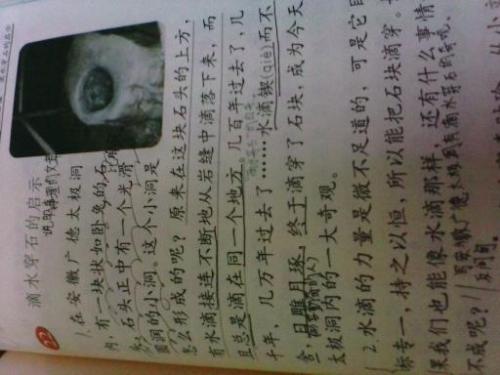 22 滴水穿石的启示
1.在安徽广德太极洞
内,有一块状如卧兔的石
头,石头正中有一个光滑
圆润的小洞。这个小洞是
怎么形成的呢?原来在这块石头的上方,
有水滴接连不断地从岩缝中滴落下来,而
且总是滴在同一个地方。几百年过去了,几
千年、几万年过去了……水滴锲(qiè)而不
舍,日雕月琢,终于滴穿了石块,成为今天
太极洞内的一大奇观。
2.水滴的力量是微不足道的,可是它目
标专一,持之以恒,所以能把石块滴穿。
果我们也能像水滴那样,还有什么事情
写安徽广德太极洞有滴水穿石的奇观。
不成呢?